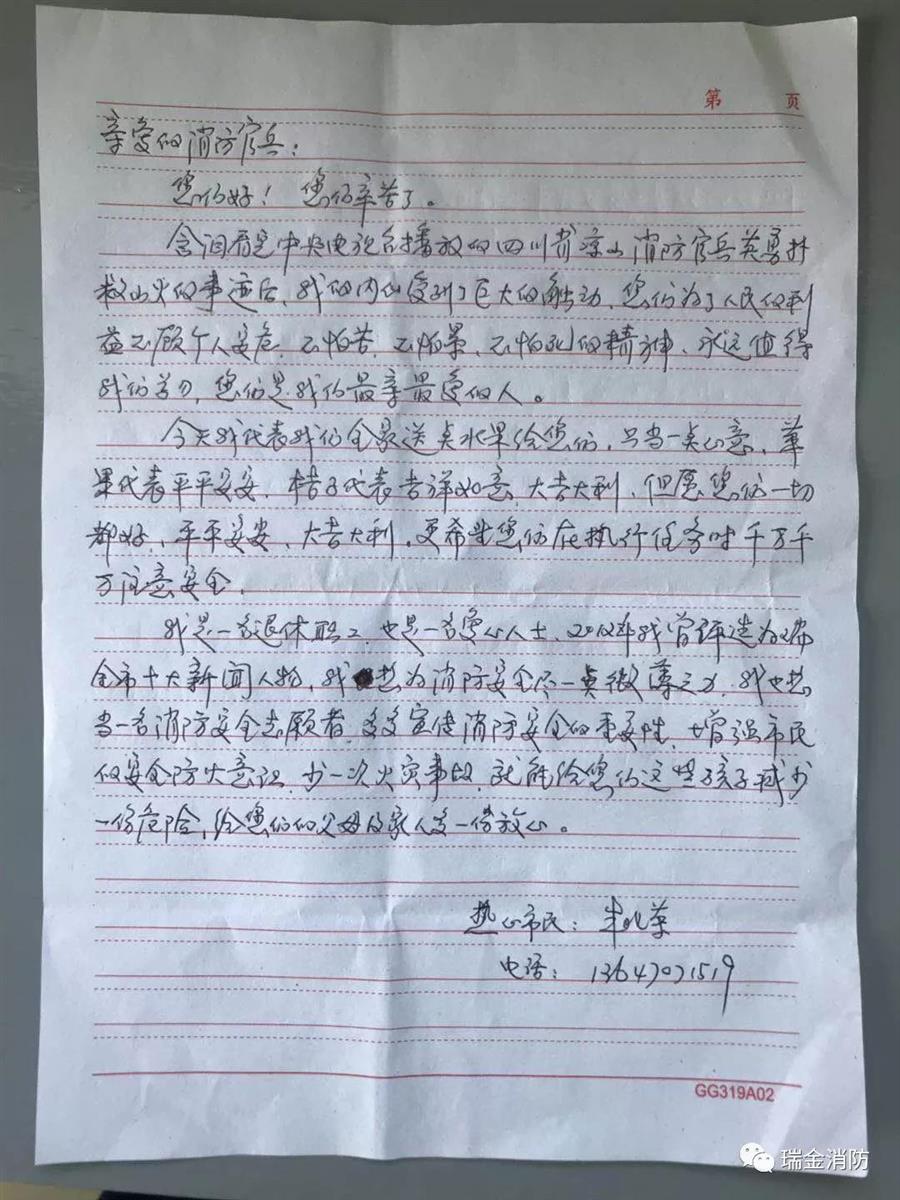 第 页
亲爱的消防官兵：
您们好！您们辛苦了。
含泪看完中央电视台播放的四川省凉山消防官兵英勇扑
救山火的事迹后，我的内心受到了巨大的触动，您们为了人民的利
益不顾个人安危、不怕苦、不怕累、不怕死的精神，永远值得
我们学习，您们是我们最亲最爱的人。
今天我代表我们全家送点水果给您们，只当一点心意，苹
果代表平平安安，桔子代表吉祥如意，大吉大利，但愿您们一切
都好，平平安安，大吉大利，更希望您们在执行任务时千万千
万注意安全。
我是一名退休职工，也是一名爱心人士，2012年我曾评选为瑞
金市十大新闻人物，我想为消防安全尽一点微薄之力，我也想
当一名消防安全志愿者，多多宣传消防安全的重要性，增强市民
的安全防火意识，少一次火灾事故，就能给您们这些孩子减少
一份危险，给您们的父母及家人多一份放心。
热心市民：朱
电话：13647071519
GG319A02
瑞金消防